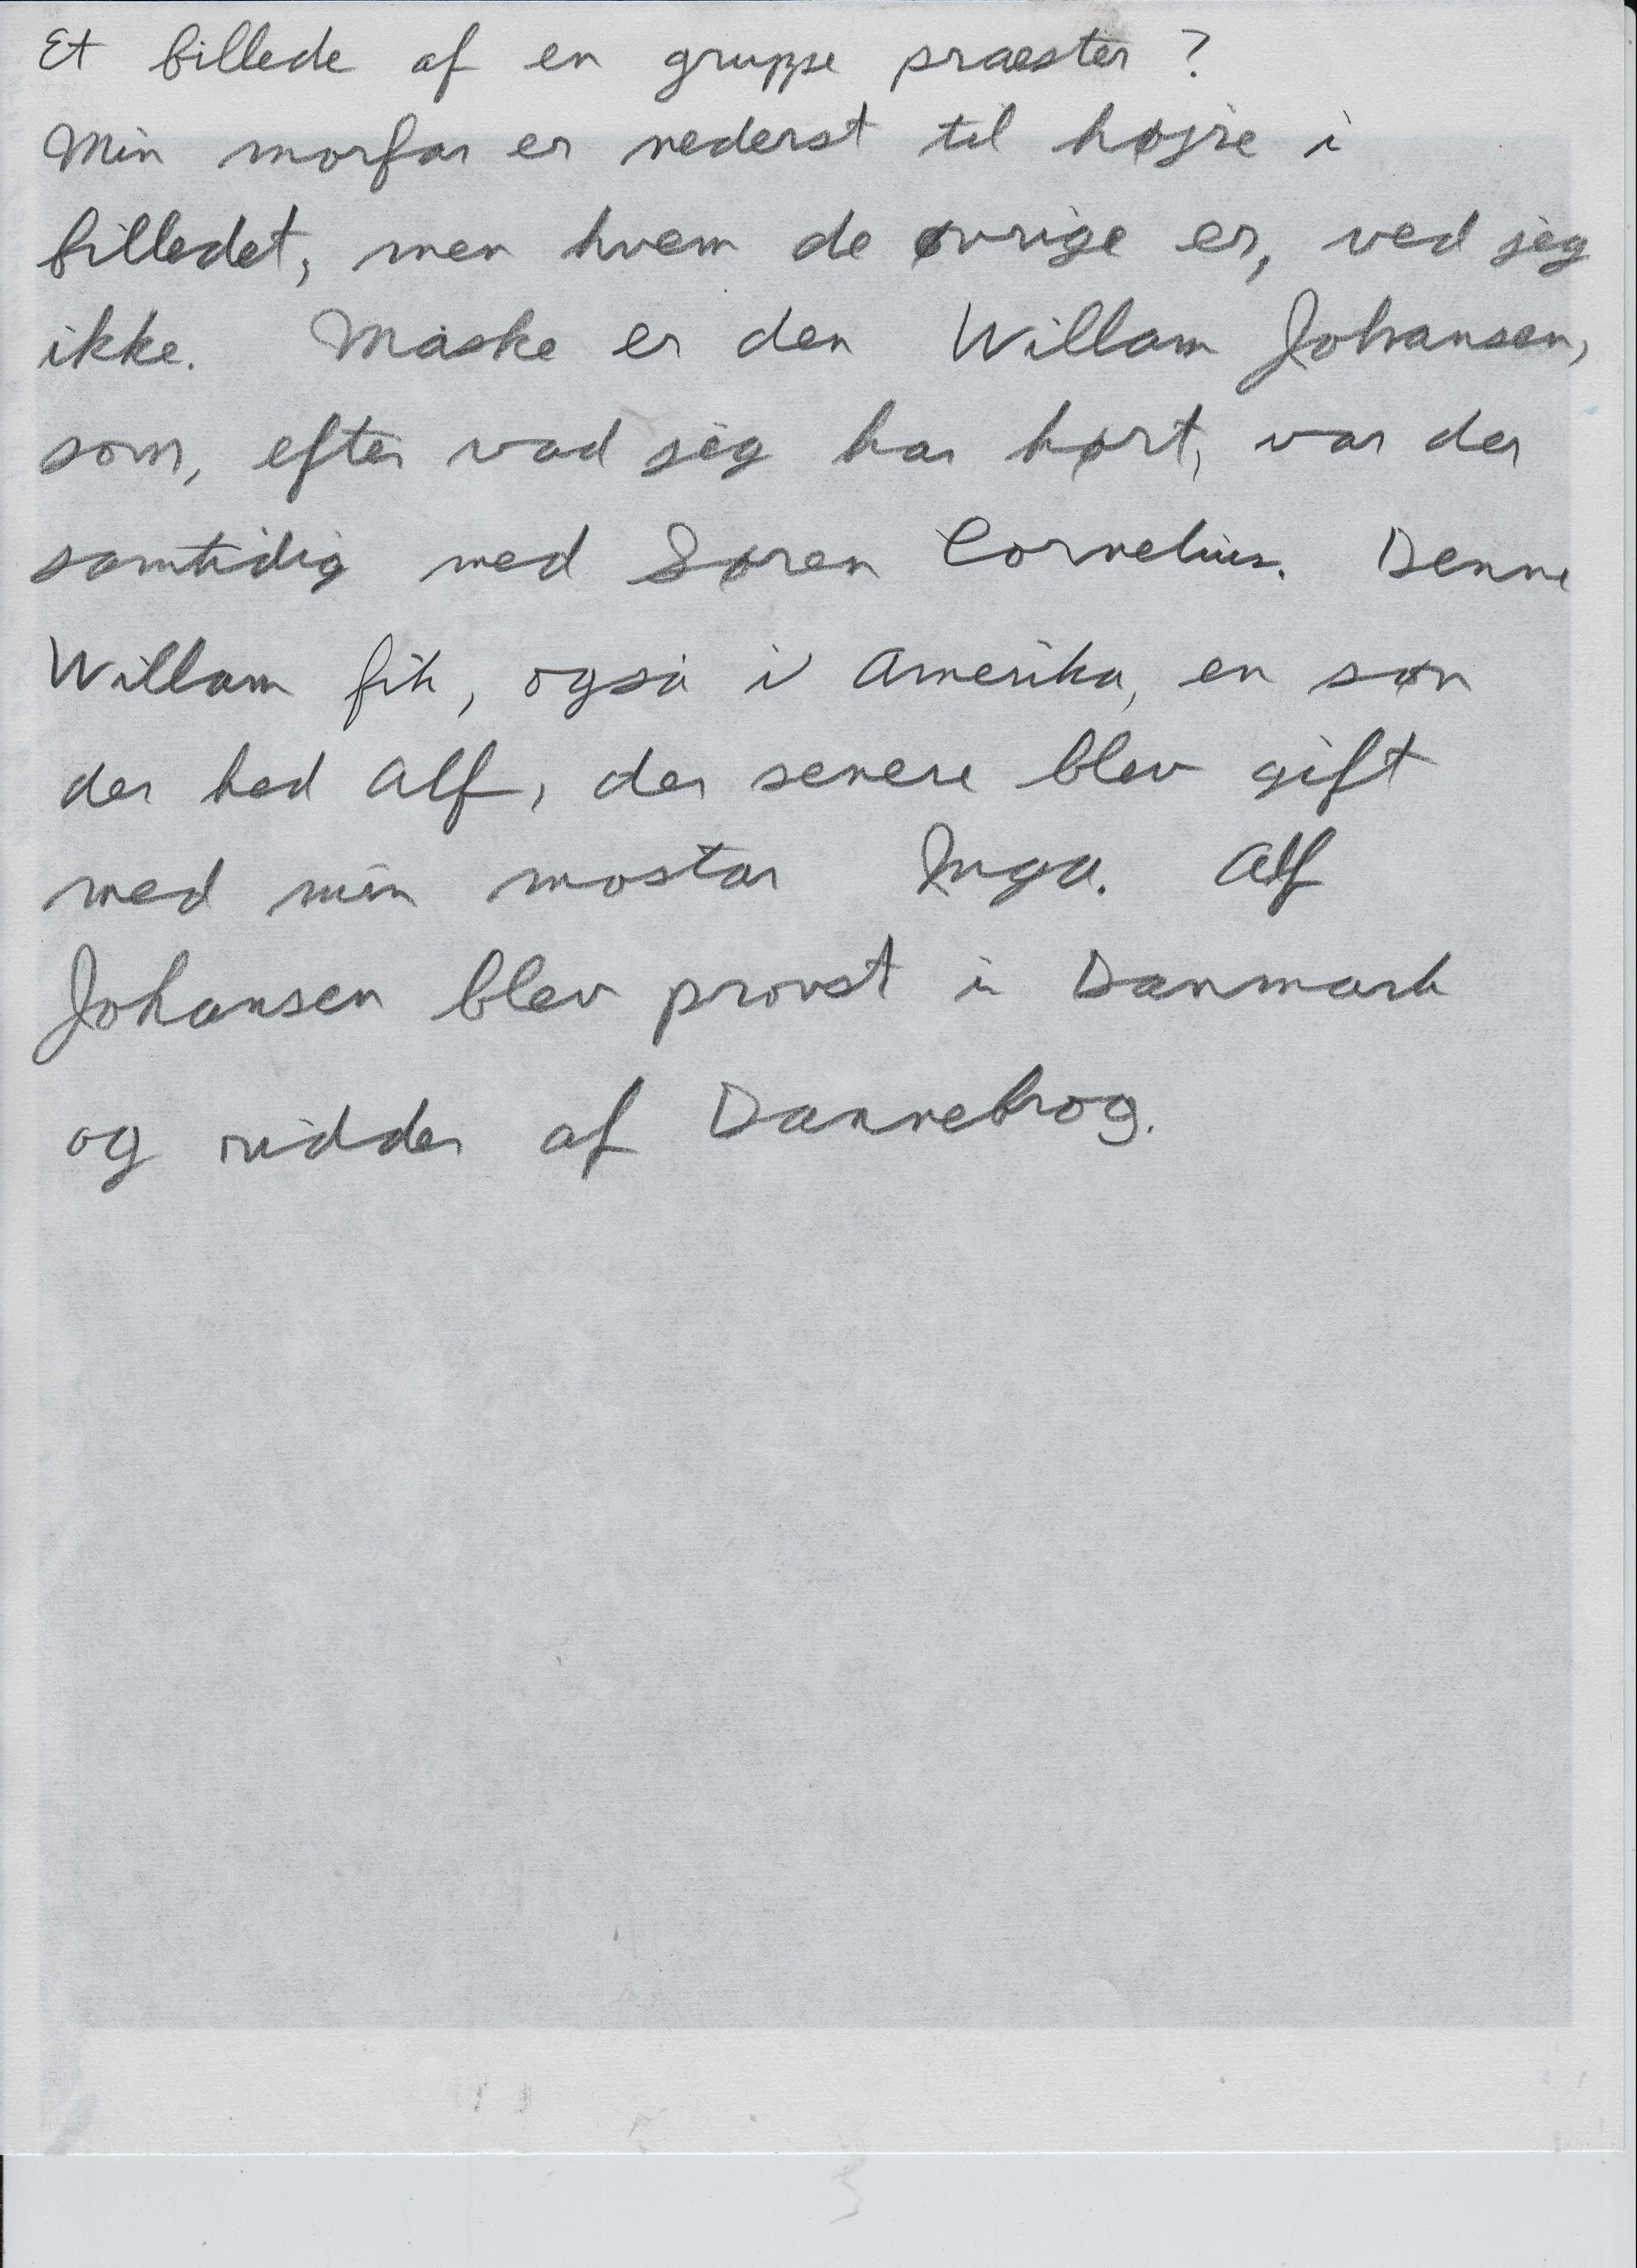 Et billede af en gruppe praester ?
Min morfar er nederst til højre i
billedet, men hvem de øvrige er, ved jeg
ikke. Måske er den Willam Johansen,
som, efter vad jeg har hørt, var der
samtidig med Søren Cornelius. Denne
Willam fik, også i Amerika, en søn
der hed Alf, der senere blev gift
med min mostar Inga. Alf
Johansen blev provst i Danmark
og ridder af Dannebrog.